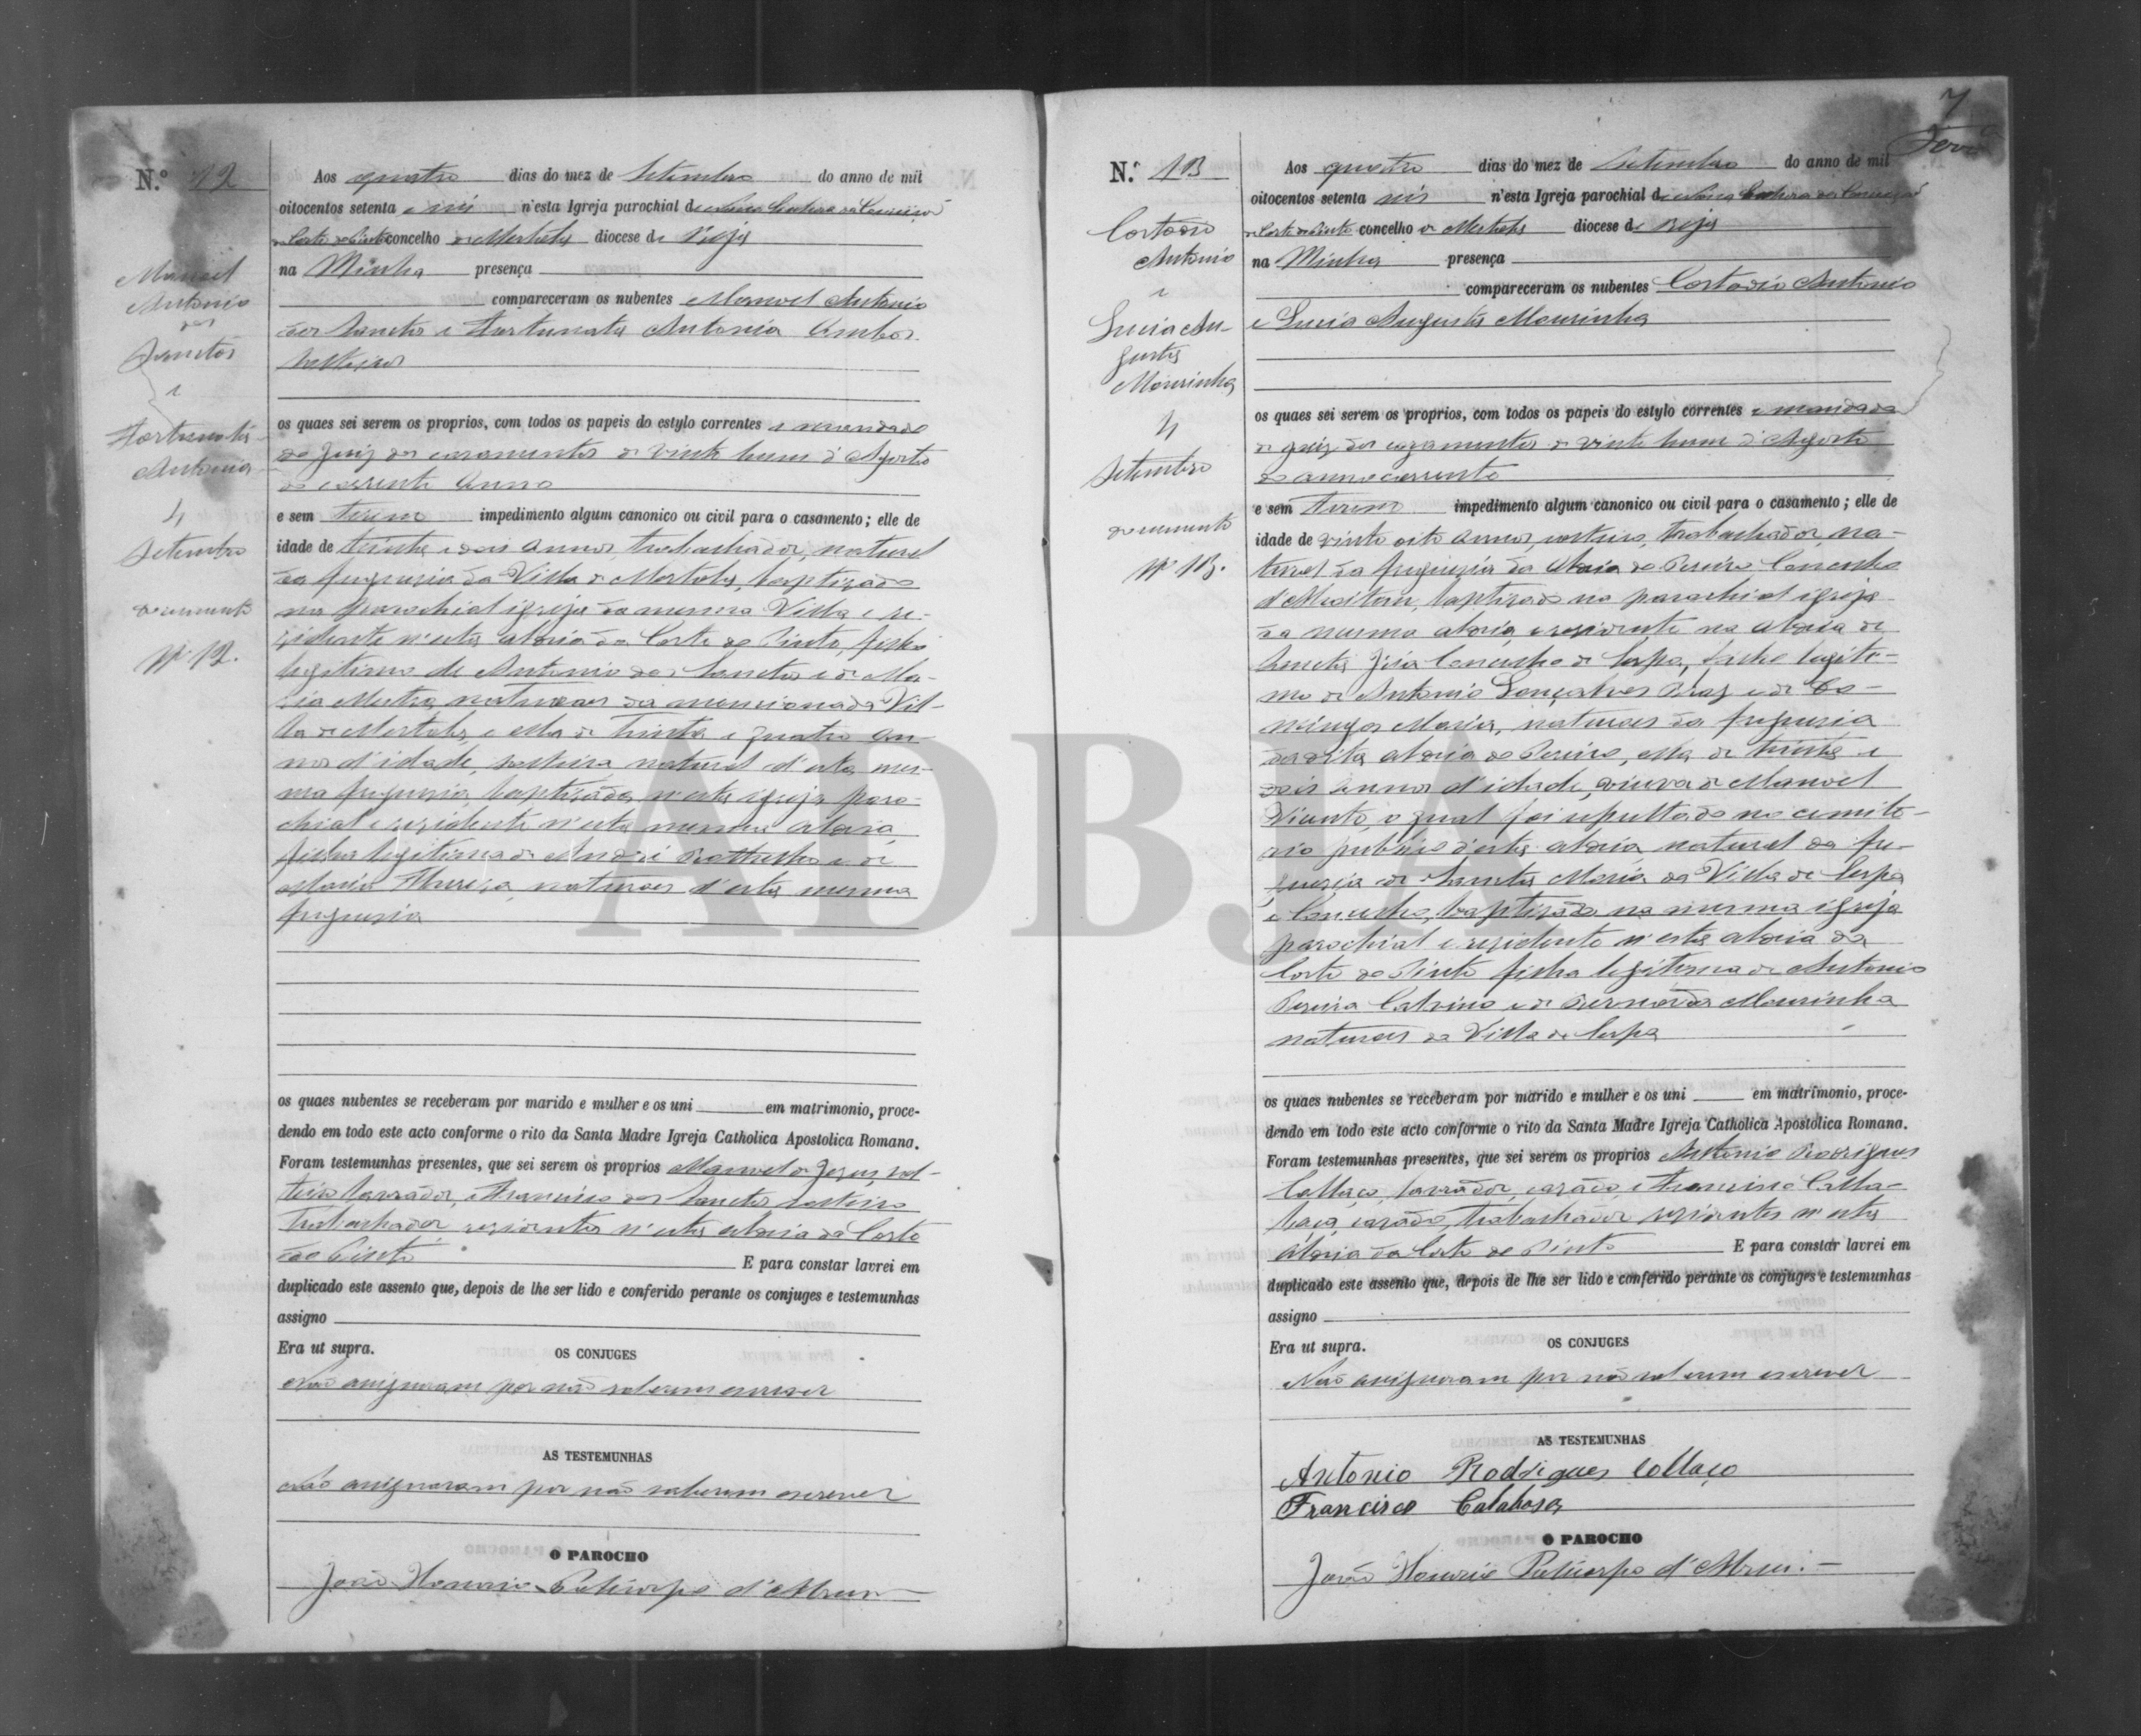 N.º 12
Manoel
Antonio
dos
Sanctos
e
Fortunata
Antonia
4
Setembro
documento
Nº 12.
Aos quatro dias do mez de Setembro do anno de mil
oitocentos setenta e seis n'esta Igreja parochial de Nossa Senhora da Conceição
da Corte do Pinto concelho de Mertola diocese de Beja
na Minha presença
compareceram os nubentes Manoel Antonio
dos Sanctos e Fortunata Antonia ambos
solteiros
os quaes sei serem os proprios, com todos os papeis do estylo correntes e mandado
do Juiz dos casamentos de vinte hum d'Agosto
do corrente anno
e sem terem impedimento algum canonico ou civil para o casamento; elle de
idade de trinta e dois annos, trabalhador, natural
da freguesia da Villa de Mertola, baptizado
na parochial igreja da mesma Villa e re-
zidente n'esta aldeia da Corte do Pinto, filho
legitimo de Antonio dos Sanctos e de Ma-
ria naturaes da mencionada Vil-
la de Mertola, e ella de trinta e quatro an-
nos d'idade, solteira natural d'esta mes-
ma freguesia, baptizada n'esta igreja paro-
chial e rezidente n'esta mesma aldeia,
filha legitima de André e de
Maria Thereza, naturaes d'esta mesma
freguesia
os quaes nubentes se receberam por marido e mulher e os uni em matrimonio, proce-
dendo em todo este acto conforme o rito da Santa Madre Igreja Catholica Apostolica Romana.
Foram testemunhas presentes, que sei serem os proprios Manoel de Jesus, sol-
teiro lavrador, e Francisco dos Sanctos, solteiro
Trabalhador, rezidentes n'esta aldeia da Corte
do Pinto E para constar lavrei em
duplicado este assento que, depois de lhe ser lido e conferido perante os conjuges e testemunhas
assigno
Era ut supra.
OS CONJUGES
Não assignaram por não saberem escrever
AS TESTEMUNHAS
Não assignaram por não saberem escrever
O PAROCHO
João Honorio Policarpo d'Abreu
7
N.º 13
Costodio
Antonio
e
Lucia Au-
gusta
Mourinha
4
Setembro
documento
Nº 13.
Aos quatro dias do mez de Setembro do anno de mil
oitocentos setenta seis n'esta Igreja parochial de Nossa Senhora da Conceição
da Corte do Pinto concelho de Mertola diocese de Beja
na Minha presença
compareceram os nubentes Costodio Antonio
e Lucia Augusta Mourinha
os quaes sei serem os proprios, com todos os papeis do estylo correntes e mandado
do juiz dos cazamentos de vinte hum d'Agosto
do anno corrente
e sem terem impedimento algum canonico ou civil para o casamento; elle de
idade de vinte oito annos, solteiro, trabalhador, na-
tural da freguezia da aldeia do Pereiro Concelho
d'Alcoitim, baptizado na parochial igreja
da mesma aldeia, e rezidente na aldeia de
Sancta Iria Concelho de Serpa, filho legiti-
mo de Antonio Gonçalves Braz e de Do-
mingas Maria, naturaes da freguesia
da dita aldeia do Pereiro, ella de trinta e
dois annos d'idade, viuva de Manoel
Vicente, o qual foi sepultado no cemite-
rio publico d'esta aldeia, natural da fre-
guezia de Sancta Maria da Villa de Serpa
e Concelho, baptizada na mesma igreja
parochial e rezidente n'esta aldeia da
Corte do Pinto filha legitima de Antonio
Pereira e de Bernarda Mourinha
naturaes da Villa de Serpa
os quaes nubentes se receberam por marido e mulher e os uni em matrimonio, proce-
dendo em todo este acto conforme o rito da Santa Madre Igreja Catholica Apostolica Romana.
Foram testemunhas presentes, que sei serem os proprios Antonio Rodrigues
Collaço, lavrador, cazado, e Francisco Calla-
baça, cazado, trabalhador rezidentes n'esta
aldeia da Corte do Pinto E para constar lavrei em
duplicado este assento que, depois de lhe ser lido e conferido perante os conjuges e testemunhas
assigno
Era ut supra.
OS CONJUGES
Não assignaram por não saberem escrever
AS TESTEMUNHAS
Antonio Rodrigues Collaço
Francisco Calabasa
O PAROCHO
João Honorio Policarpo d'Abreu
ADBJA